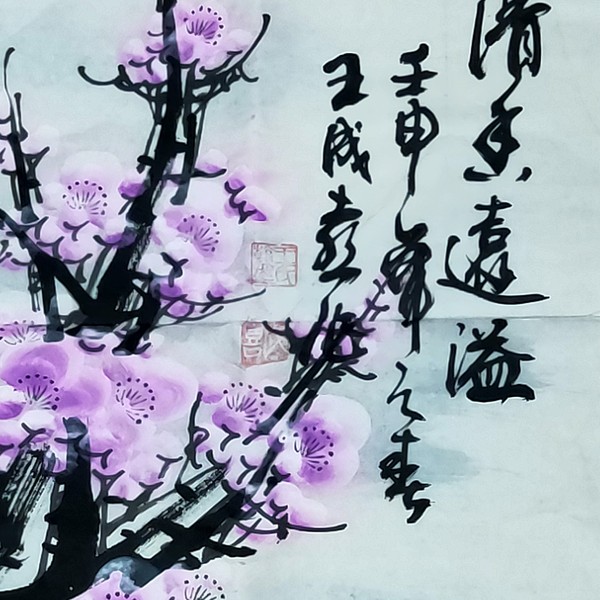 清香遠溢
壬申年之春
王成喜